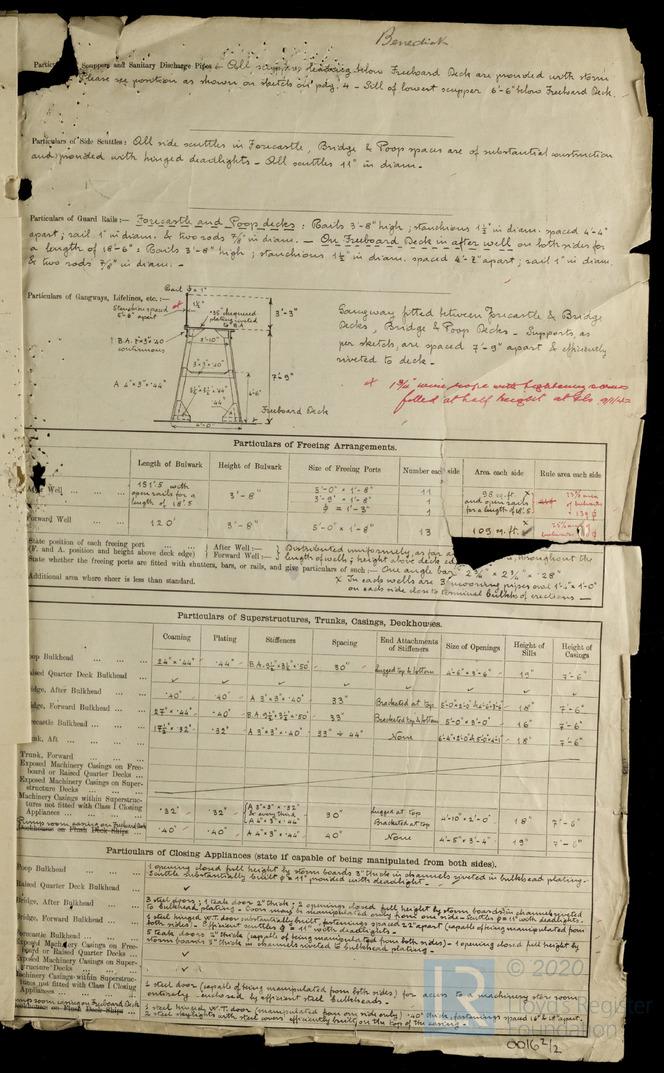 Benedick
Scuppers and Sanitary Discharge Pipes :- All scuppers leading below Freeboard Deck are provided with storm
Please see position as shown on sketch on pdg. 4 - Sill of lowest scupper 6'-6" below Freeboard Deck.
Particulars of Side Scuttles: All side scuttles in Forecastle, Bridge & Poop spaces are of substantial construction
and provided with hinged deadlights - All scuttles 11" in diam.
Particulars of Guard Rails :- Forecastle and Poop decks : Rails 3'-8" high ; stanchions 1½" in diam. spaced 4'-4"
apart ; rail 1" in diam. & two rods ⅞" in diam. - On Freeboard Deck in after well on both sides for
a length of 18'-6" : Rails 3'-8" high ; stanchions 1½" in diam. spaced 4'-2" apart ; rail 1" in diam
& two rods ⅞" in diam. -
Particulars of Gangways, Lifelines, etc. :-
Rail ϕ = 1"
Stanchions spaced
5'-8" apart
1½"
.35" chequered
plating riveted
to B.A.
3'-3"
B.A. 7"×3"×.40
continuous
3'-10"
3"×3"×.40"
7'-9"
A 4"×3"×.44"
.44"
4'-6"
4'-0"
Freeboard Deck
Gangway fitted between Forecastle & Bridge
Decks, Bridge & Poop Decks - Supports, as
per sketch, are spaced 7'-9" apart & efficiently
riveted to deck -
wire rope with tightening screws
fitted at half height
Particulars of Freeing Arrangements.
Length of Bulwark Height of Bulwark Size of Freeing Ports Number each side Area each side Rule area each side
After Well 151'.5 with open rails for a length of 18'.5 3'-8" 5'-0" × 1'-8" 11 98 sq. ft. and open rails for a length of 18'.5
3'-9" × 1'-8" 1
ϕ = 1'-3" 1
Forward Well 120' 3'-8" 5'-0" × 1'-8" 13 109 sq. ft.
State position of each freeing port
(F. and A. position and height above deck edge) After Well :- Forward Well :- Distributed uniformly, as far as throughout the
length of well ; height above deck
State whether the freeing ports are fitted with shutters, bars, or rails, and give particulars of such :- One angle bar 2¾" × 2¾" × .28"
Additional area where sheer is less than standard. × In each wells are 3 mooring pipes oval 1'-4" × 1'-0"
on each side close to terminal bulkhs of erections -
Particulars of Superstructures, Trunks, Casings, Deckhouses.
Coaming Plating Stiffeners Spacing End Attachments of Stiffeners Size of Openings Height of Sills Height of Casings
Poop Bulkhead 24" × .44" .44" B.A. 9½"×3½"×.50" 30" Lugged top & bottom 4'-6"×3'-6" 19" 7'-6"
Raised Quarter Deck Bulkhead
Bridge, After Bulkhead .40" .40" A 3"×3"×.40" 33" Bracketed at top 18" 7'-6"
Bridge, Forward Bulkhead 27" × .44" .40" B.A. 9½"×3½"×.50" 33" Bracketed top & bottom 5'-0"×3'-0" 16" 7'-6"
Forecastle Bulkhead 17½" × .32" .32" A 3"×3"×.40" 33" ÷ 44" None 18" 7'-6"
Trunk, Aft
Trunk, Forward
Exposed Machinery Casings on Free-
board or Raised Quarter Decks
Exposed Machinery Casings on Super-
structure Decks
Machinery Casings within Superstruc-
tures not fitted with Class I Closing
Appliances .32" .32" A 3"×3"×.32" & every third A 4"×3"×.44" 30" Lugged at top Bracketed at top 4'-10"×2'-0" 18" 7'-6"
Pump room casing on Freeboard Deck
Deckhouses on Flush Deck Ships .40" .40" A 4"×3"×.44" 40" None 4'-5"×3'-4" 19" 7'-6"
Particulars of Closing Appliances (state if capable of being manipulated from both sides).
Poop Bulkhead 1 opening closed full height by storm boards 3" thick in channels riveted in bulkhead plating -
Scuttle substantially built ϕ = 11" provided with deadlight -
Raised Quarter Deck Bulkhead
Bridge, After Bulkhead 3 steel doors ; 1 teak door 2" thick ; 2 openings closed full height by storm boards in channels riveted
to bulkhead plating - Doors may be manipulated only from one side - Scuttles ϕ = 11" with deadlights -
Bridge, Forward Bulkhead 1 steel hinged W.T. door substantially built, fastenings spaced 22" apart (capable of being manipulated from
both sides) - Efficient scuttles ϕ = 11" with deadlights -
Forecastle Bulkhead 5 teak doors 2" thick (capable of being manipulated from both sides) - 1 opening closed full height by
storm boards 3" thick in channels riveted to bulkhead plating -
Exposed Machinery Casings on Free-
board or Raised Quarter Decks
Exposed Machinery Casings on Super-
structure Decks
Machinery Casings within Superstruc-
tures not fitted with Class I Closing
Appliances 1 steel door (capable of being manipulated from both sides) for access to machinery store room
entirely enclosed by efficient steel bulkheads -
Pump room casing on Freeboard Deck
Deckhouses on Flush Deck Ships 1 steel hinged W.T. door (manipulated from one side only) .40" thick, fastenings spaced 16" & 18" apart.
2 steel skylights with steel covers efficiently built on the top of the casing -
© 2020
Lloyd's Register
Foundation
0016 2/2